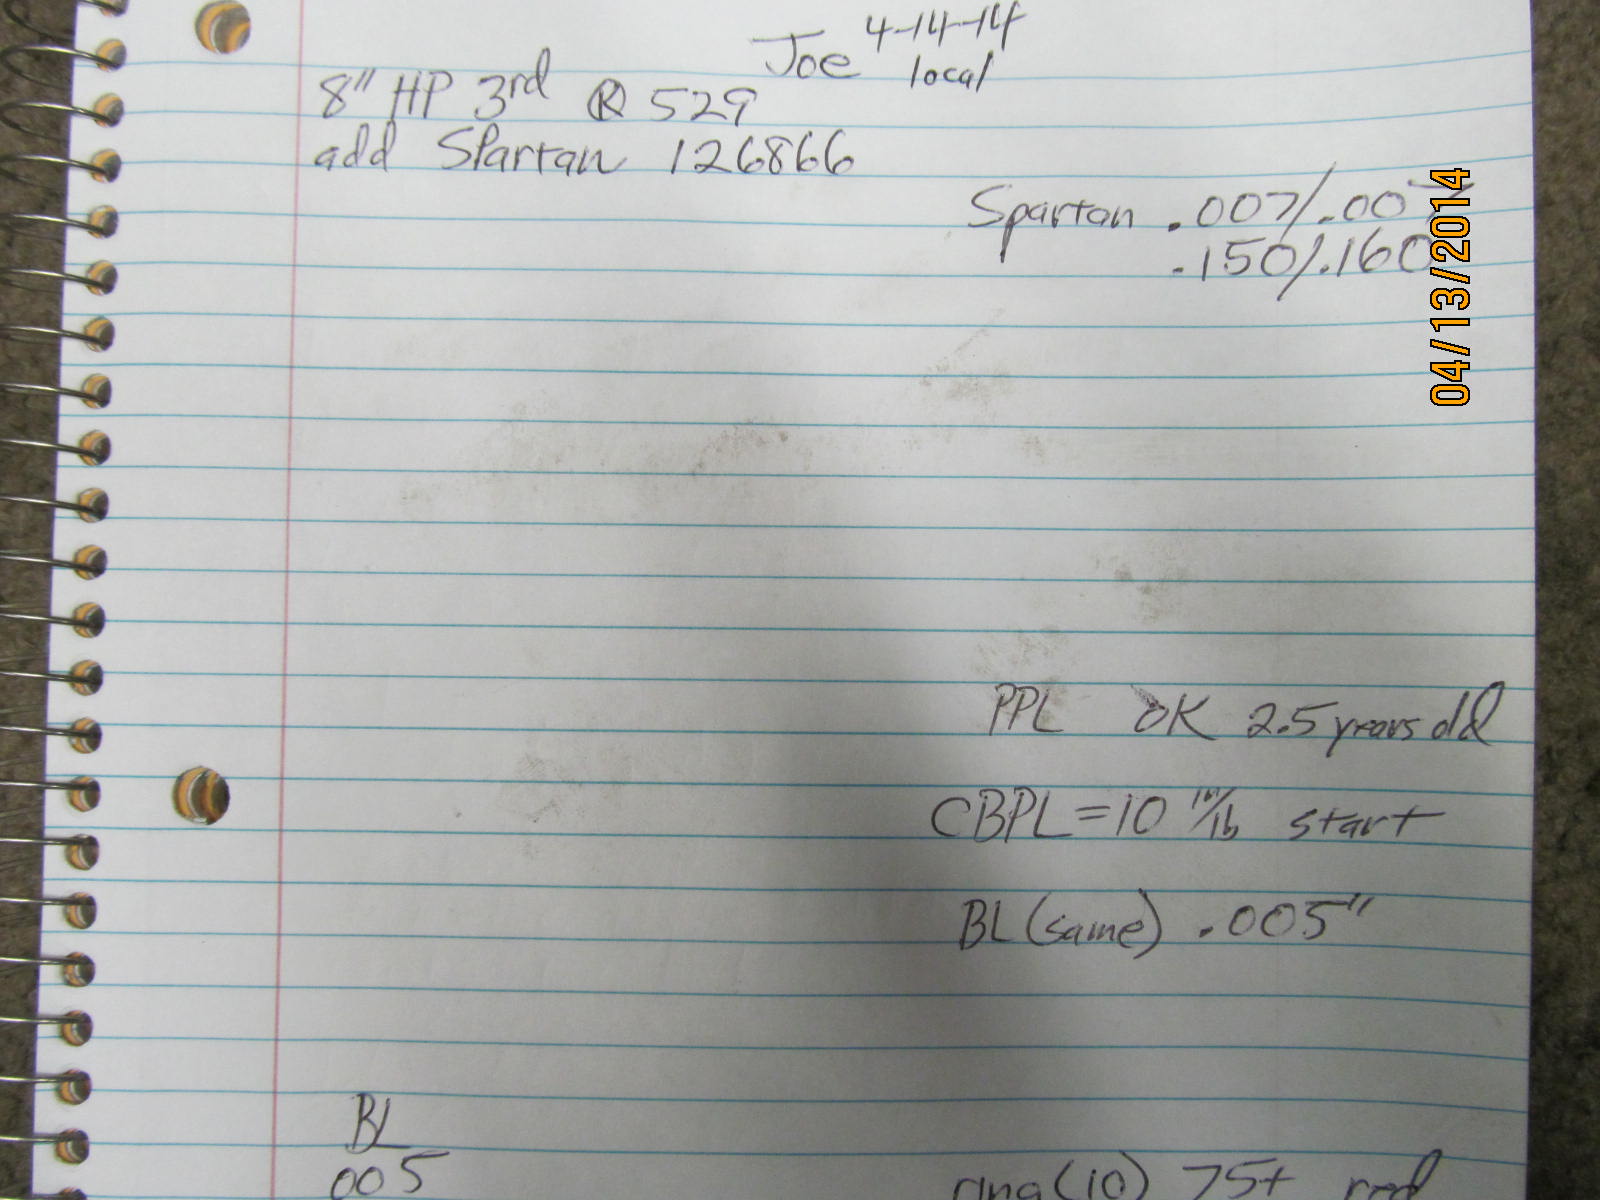 Joe 4-14-14
local
8" HP 3rd ® 529
add Spartan 126866
Spartan .007/.007
.150/.160
04/13/2014
PPL OK 2.5 years old
CBPL = 10 in/lb start
BL (same) .005"
BL
005
ring (10) 75+ red